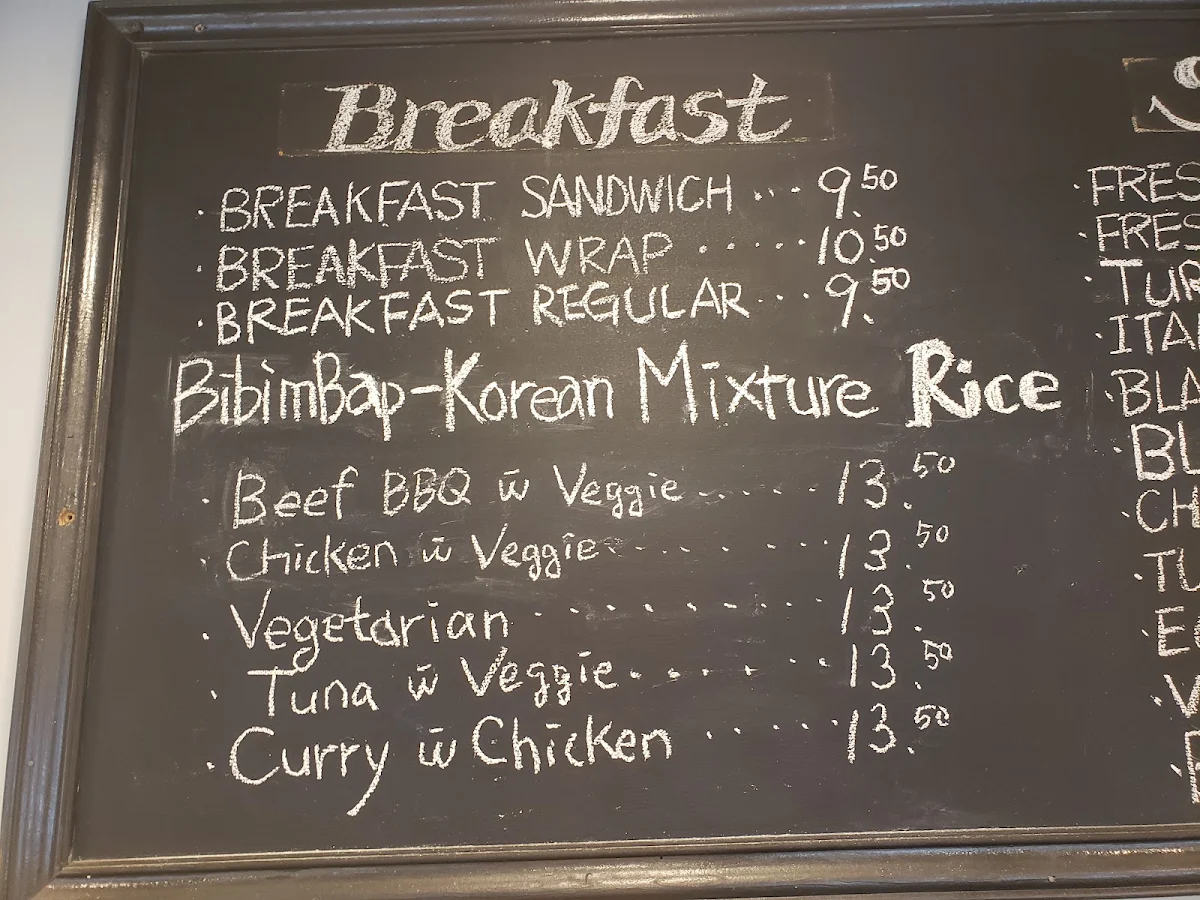 Breakfast
· BREAKFAST SANDWICH ... 9.50
· BREAKFAST WRAP ...... 10.50
· BREAKFAST REGULAR ... 9.50
BibimBap-Korean Mixture Rice
· Beef BBQ w̄ Veggie ...... 13.50
· Chicken w̄ Veggie ...... 13.50
· Vegetarian ......... 13.50
· Tuna w̄ Veggie ...... 13.50
· Curry w̄ Chicken ..... 13.50